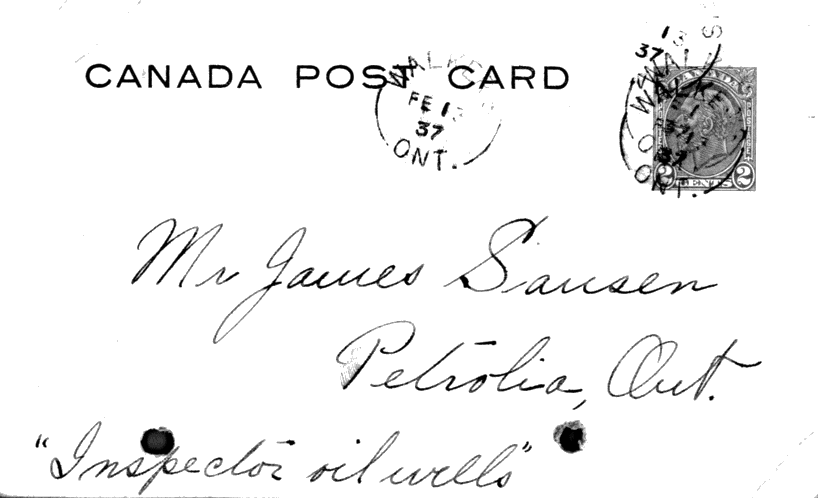 CANADA POST CARD
WALKE
FE 13
37
ONT.
13
37
WAL
WALKE
37
ONT.
CANADA
POSTAGE
2 CENTS 2
Mr James Sansen
Petrolia, Ont.
"Inspector oil wells"